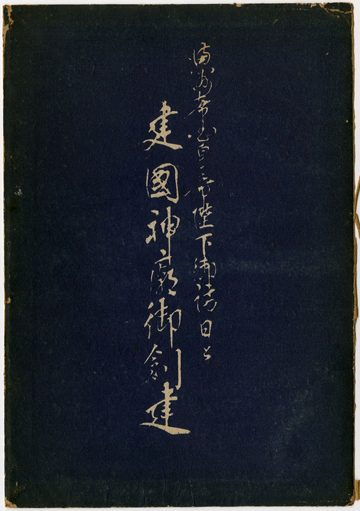 満洲帝国皇帝陛下御訪日と
建國神廟御創建